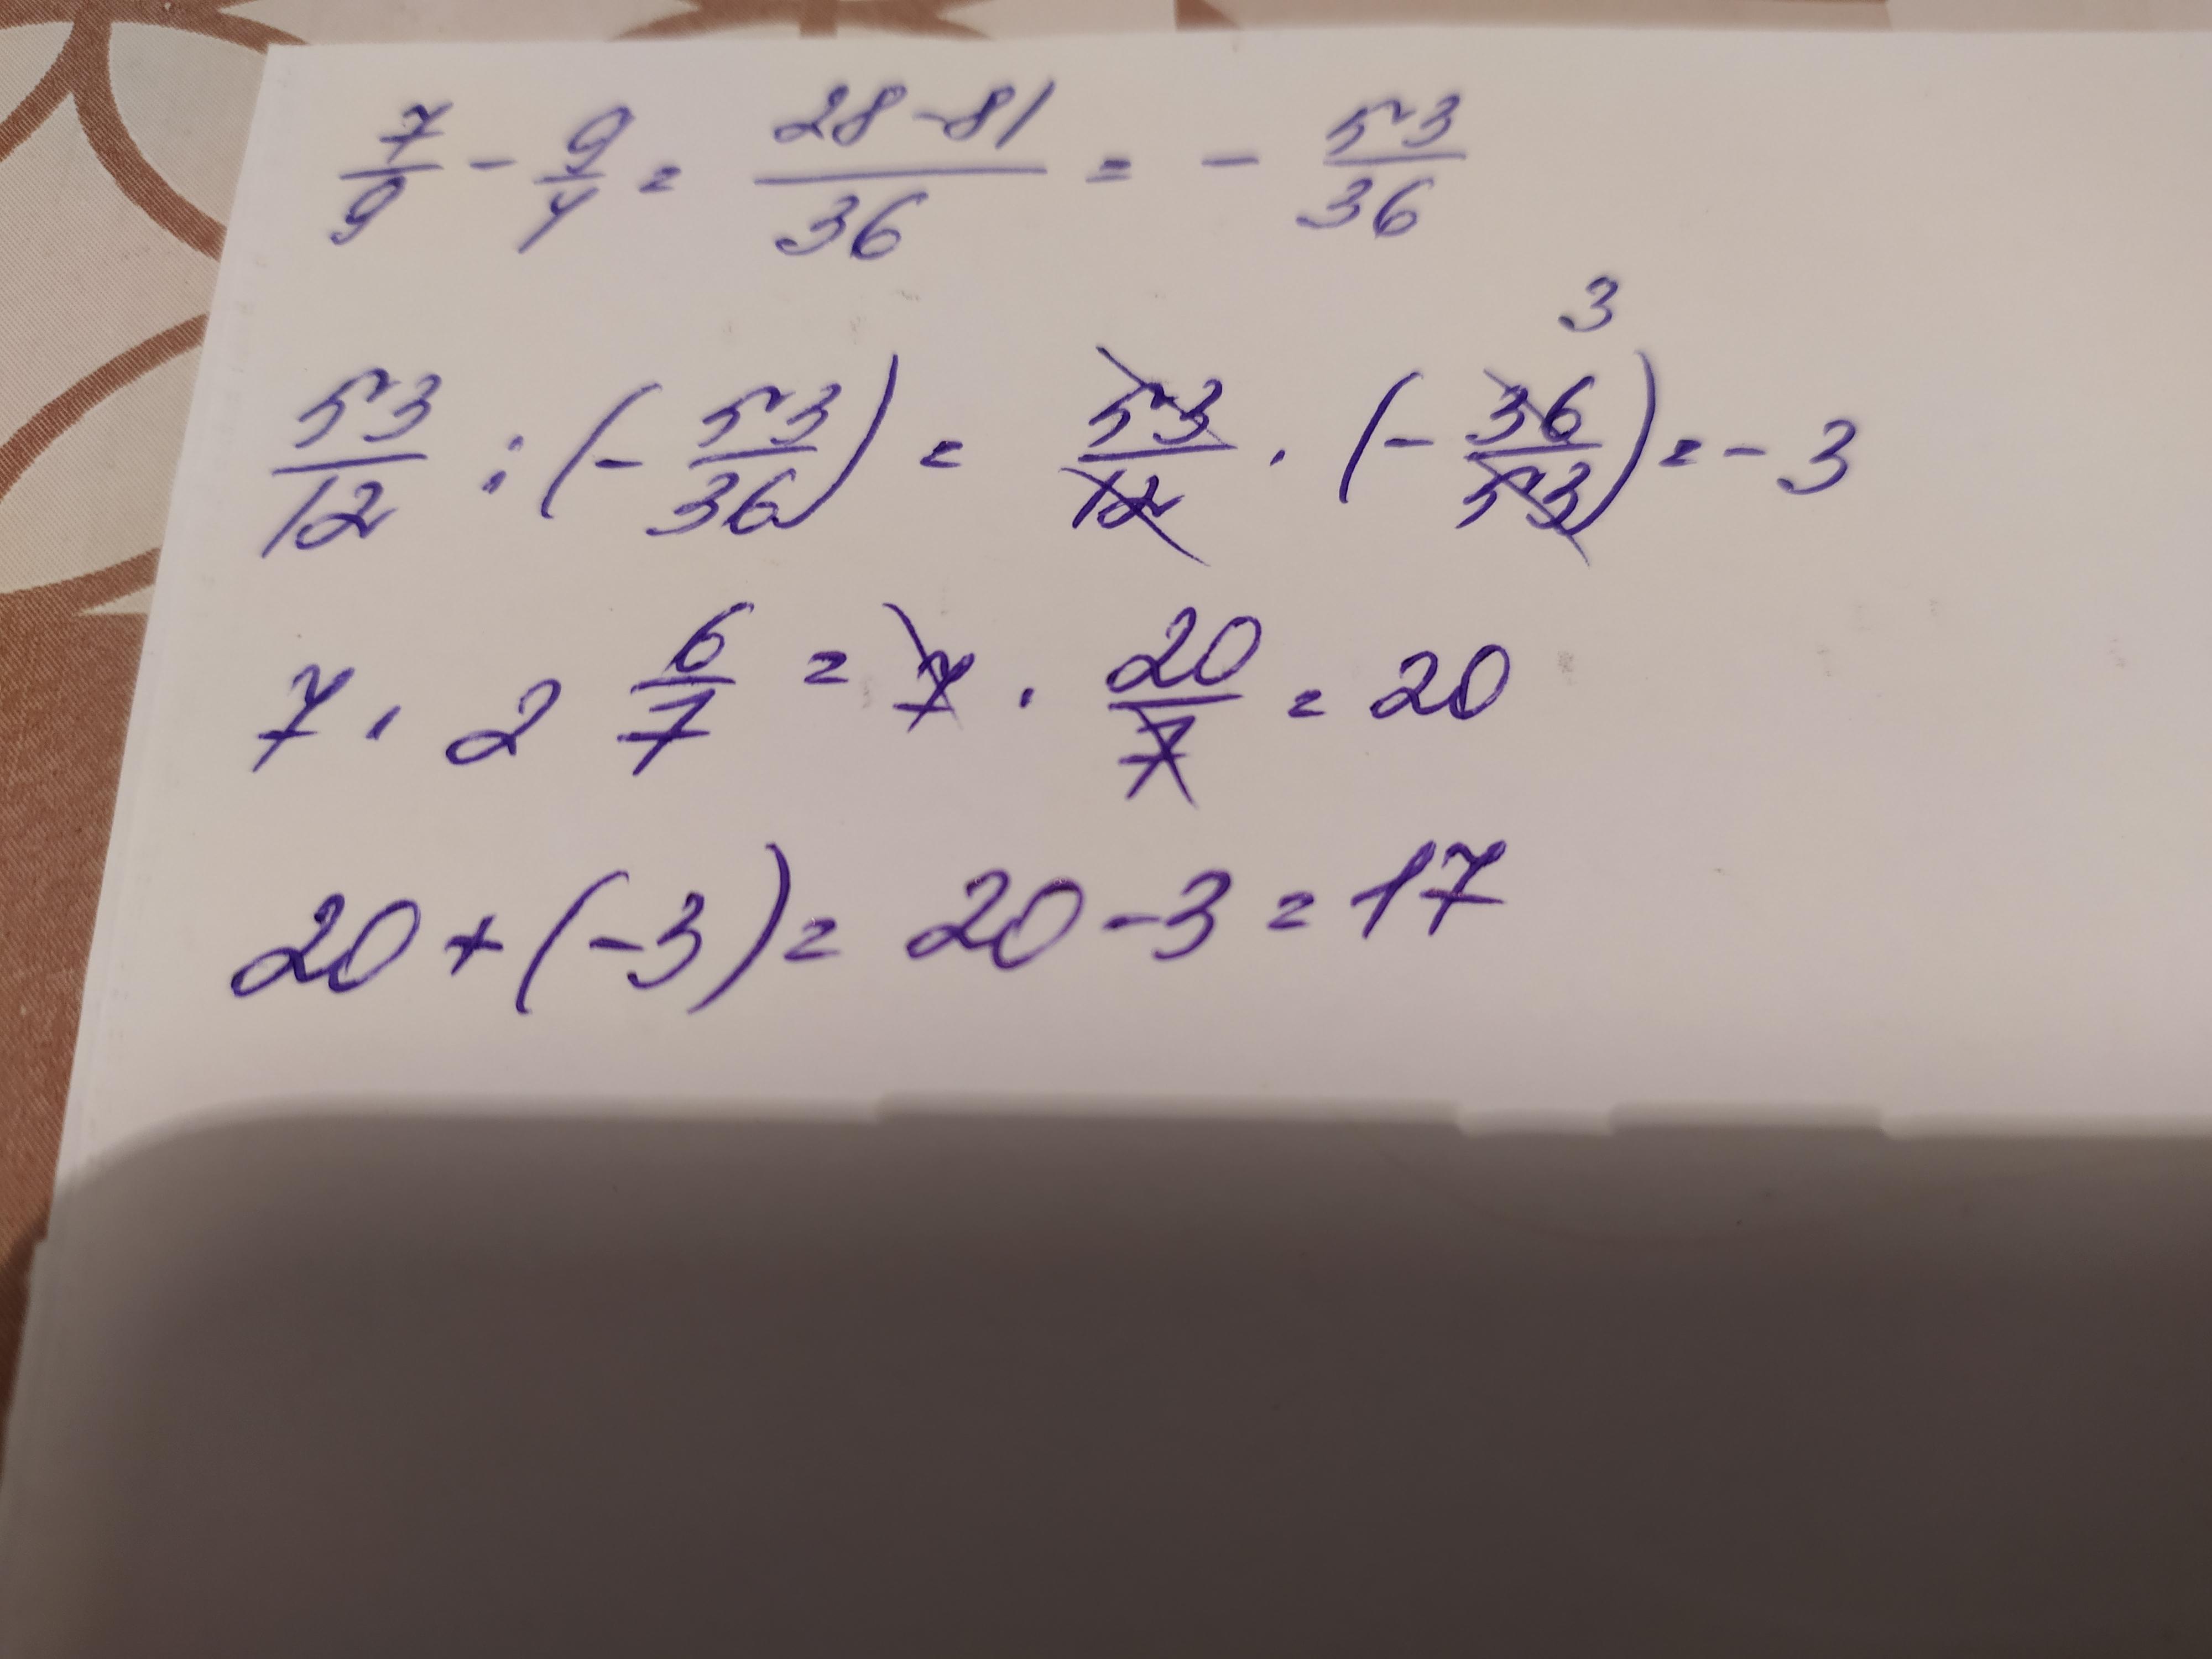 7/9 - 9/4 = (28-81)/36 = - 53/36
53/12 : (- 53/36) = 53/12 · (- 36/53) 3 = - 3
7 · 2 6/7 = 7 · 20/7 = 20
20 + (-3) = 20 - 3 = 17